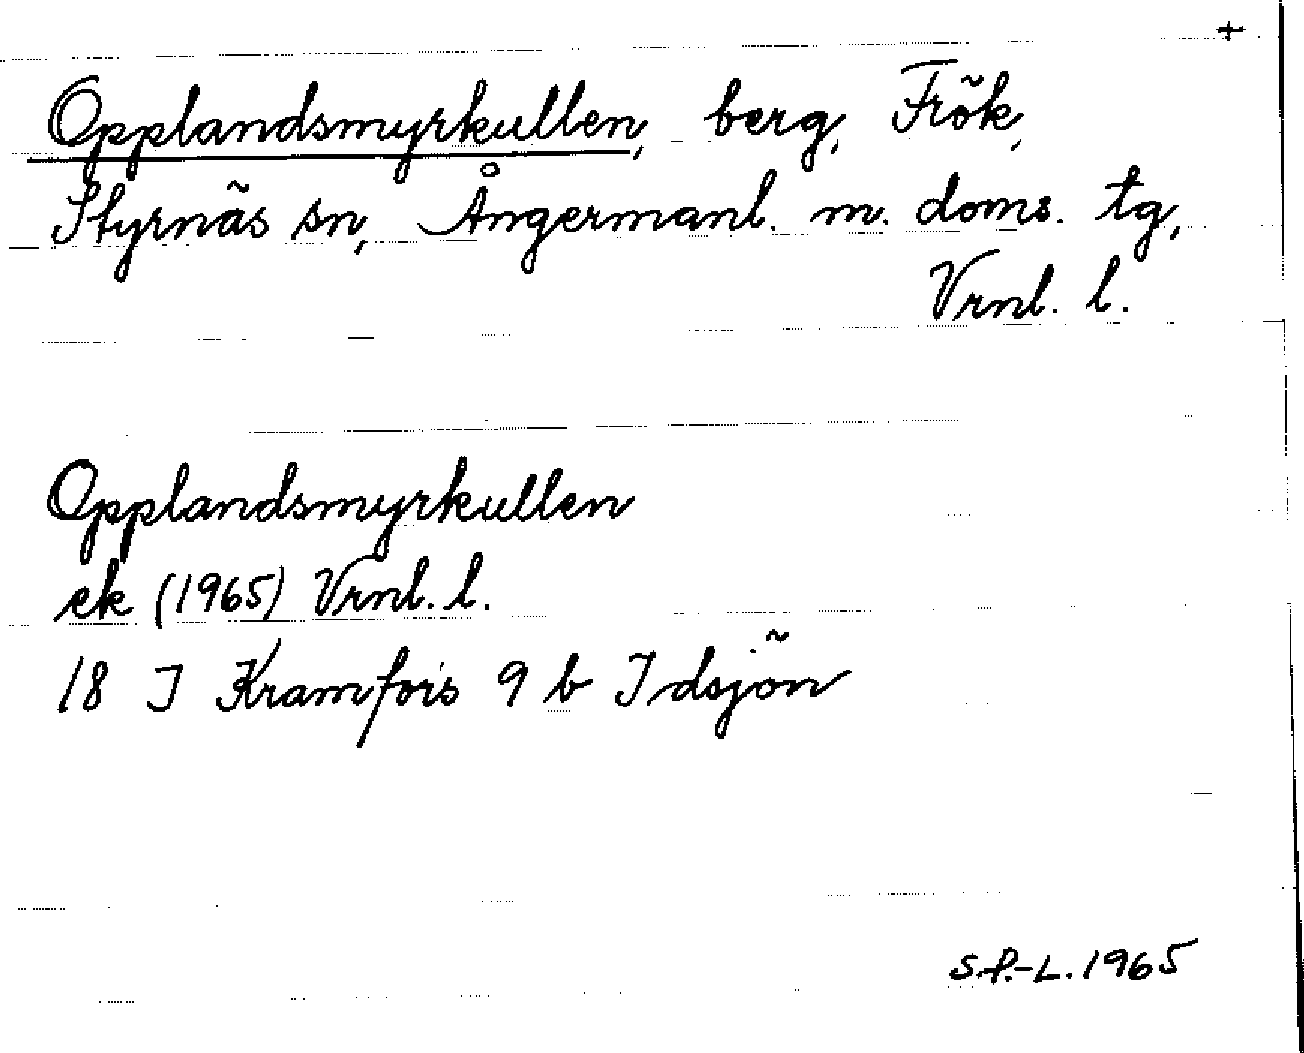 +
Opplandsmyrkullen, berg, Frök,
Styrnäs sn, Ångermanl. m. doms. tg,
Vrnl. l.
Opplandsmyrkullen
ek (1965) Vrnl. l.
18 I Kramfors 9 b Idsjön
S.P.-L. 1965